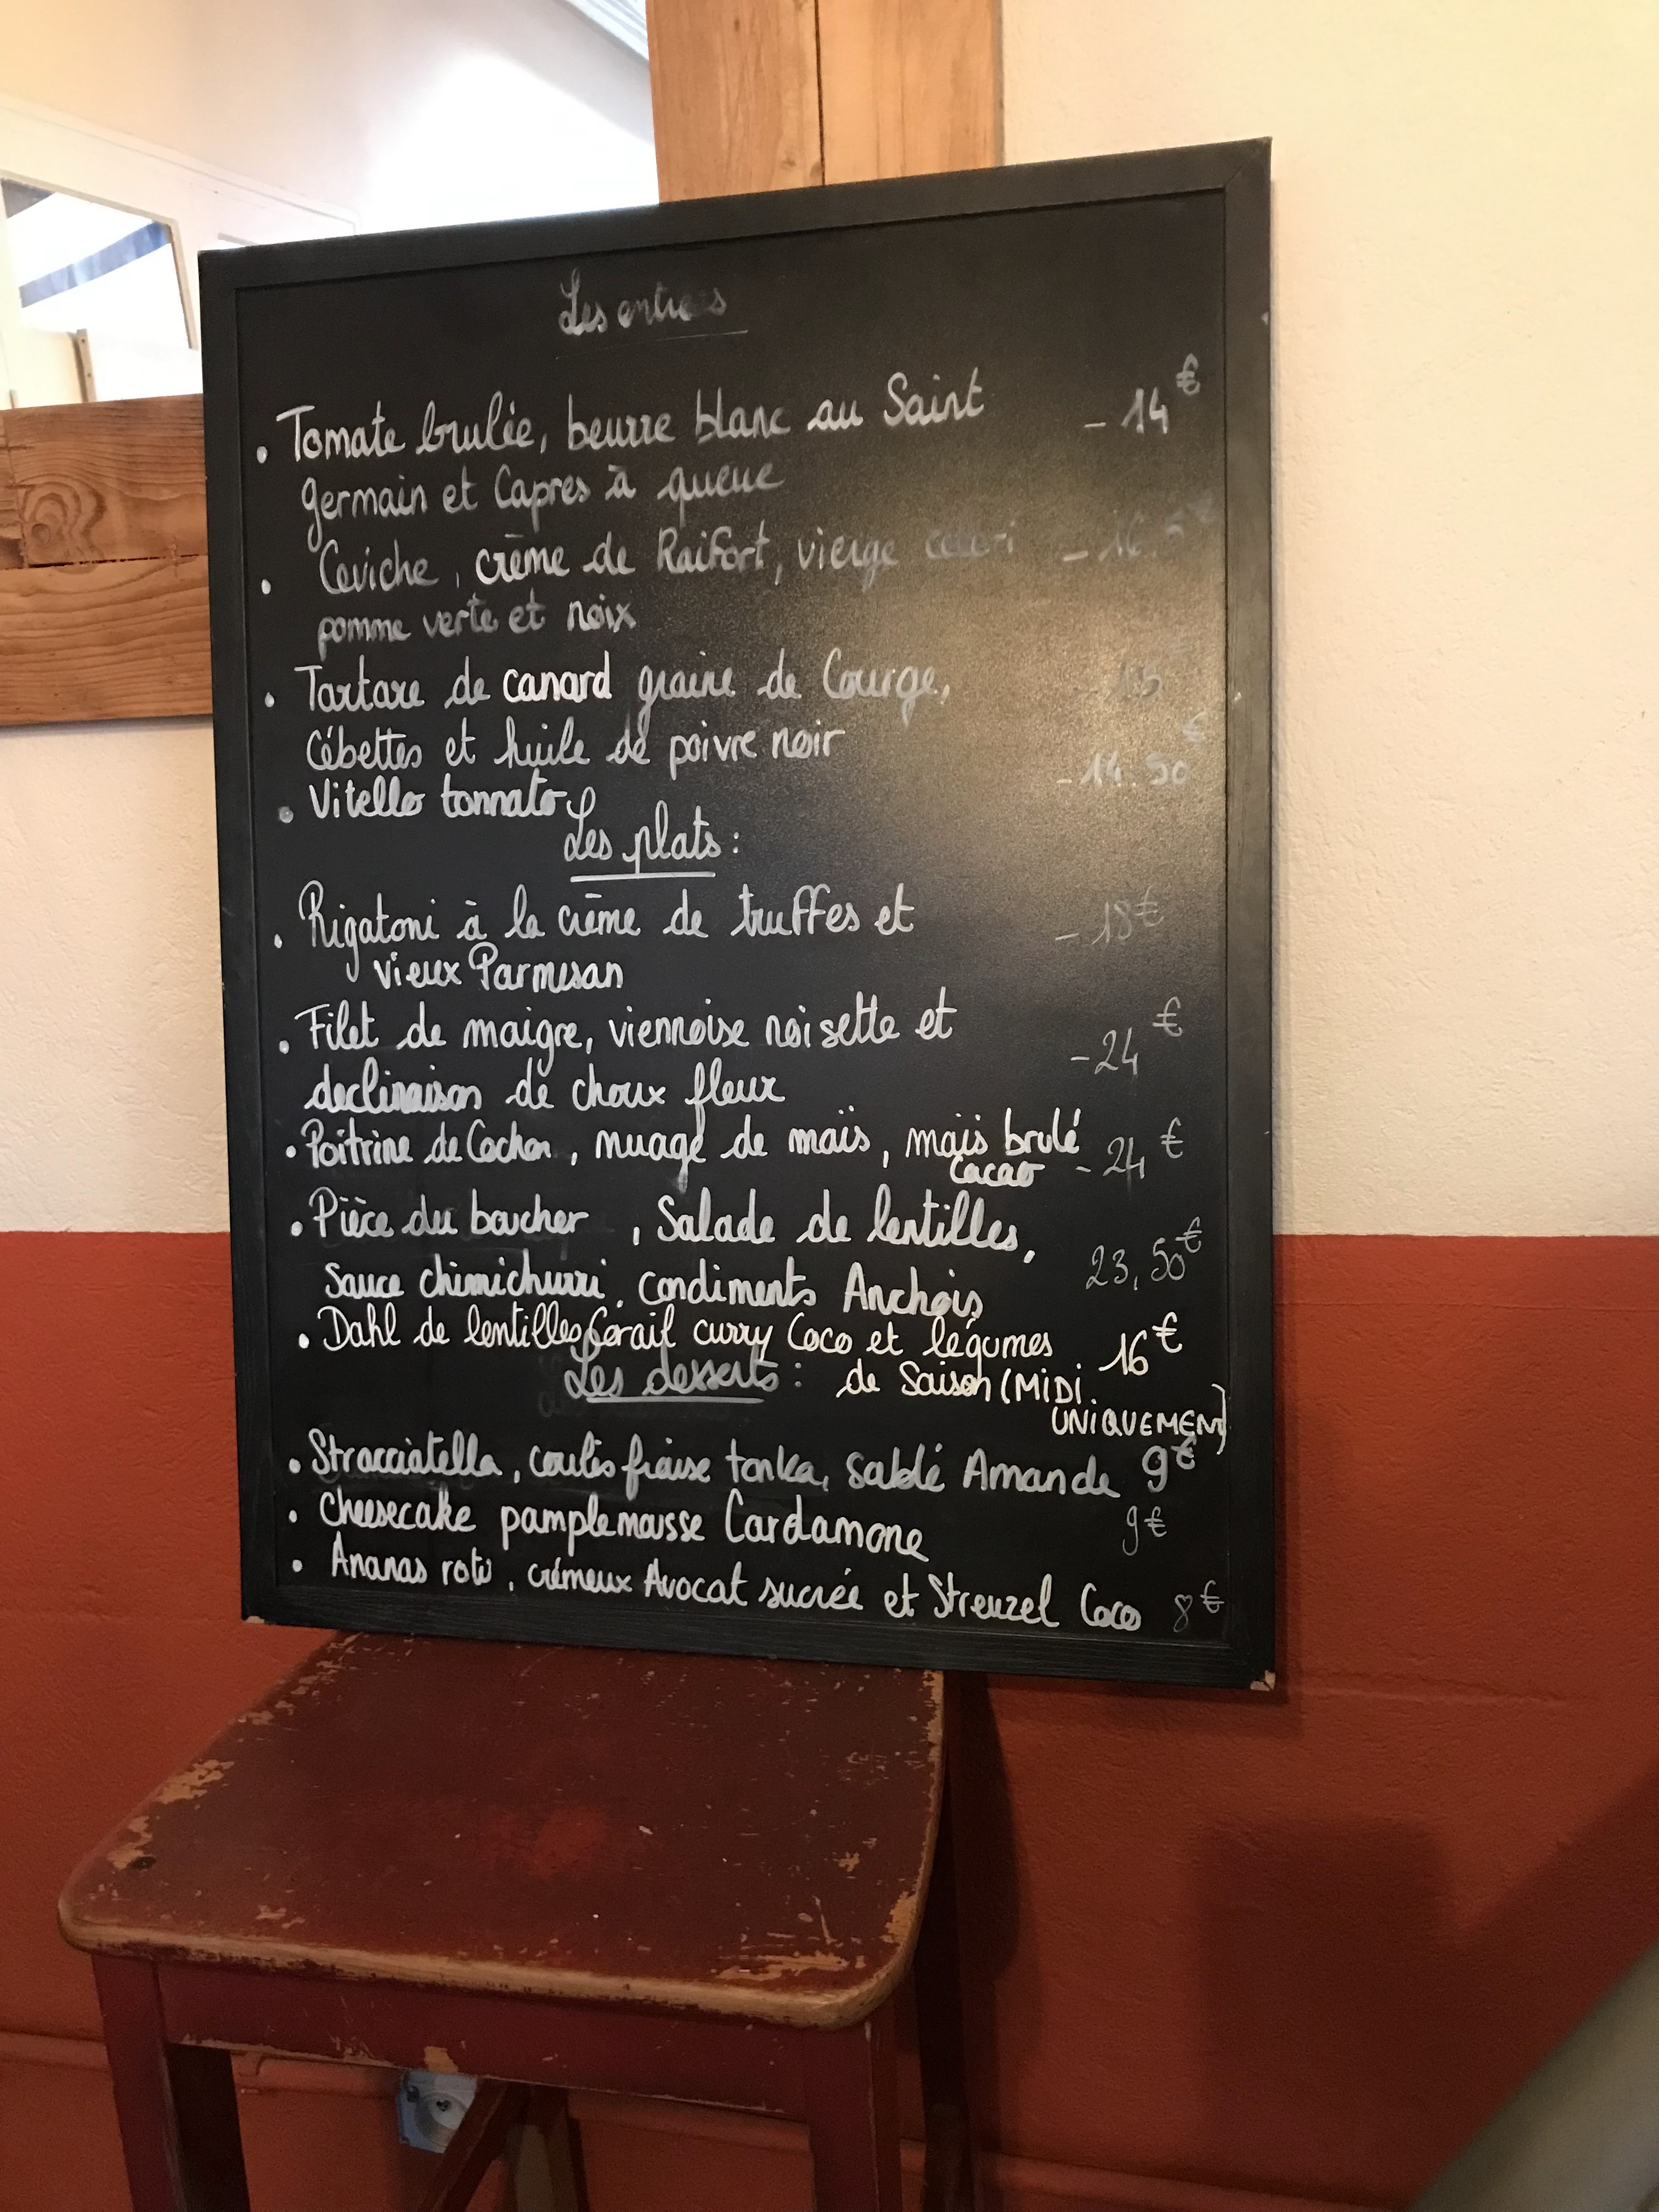 Les entrees
• Tomate brulée, beurre blanc au Saint - 14€
germain et Capres à queue
• Ceviche, crème de Raifort, vierge celeri - 16.5€
pomme verte et noix
• Tartare de canard graine de Courge, - 15€
Cébettes et huile de poivre noir
• Vitello tonnato - 14.50€
Les plats :
• Rigatoni à la crème de truffes et - 18€
vieux Parmesan
• Filet de maigre, viennoise noisette et - 24€
declinaison de choux fleur
• Poitrine de Cochon, nuage de maïs, maïs brulé
Cacao - 24€
• Pièce du boucher, Salade de lentilles, 23,50€
Sauce chimichurri. condiments Anchois
• Dahl de lentilles Corail curry Coco et légumes 16€
Les desserts : de Saison (MiDi
UNiQUEMENT)
• Stracciatella, coulis fraise tonka, sablé Amande 9€
• Cheesecake pamplemousse Cardamone 9€
• Ananas roti, crémeux Avocat sucrée et Streuzel Coco 8€